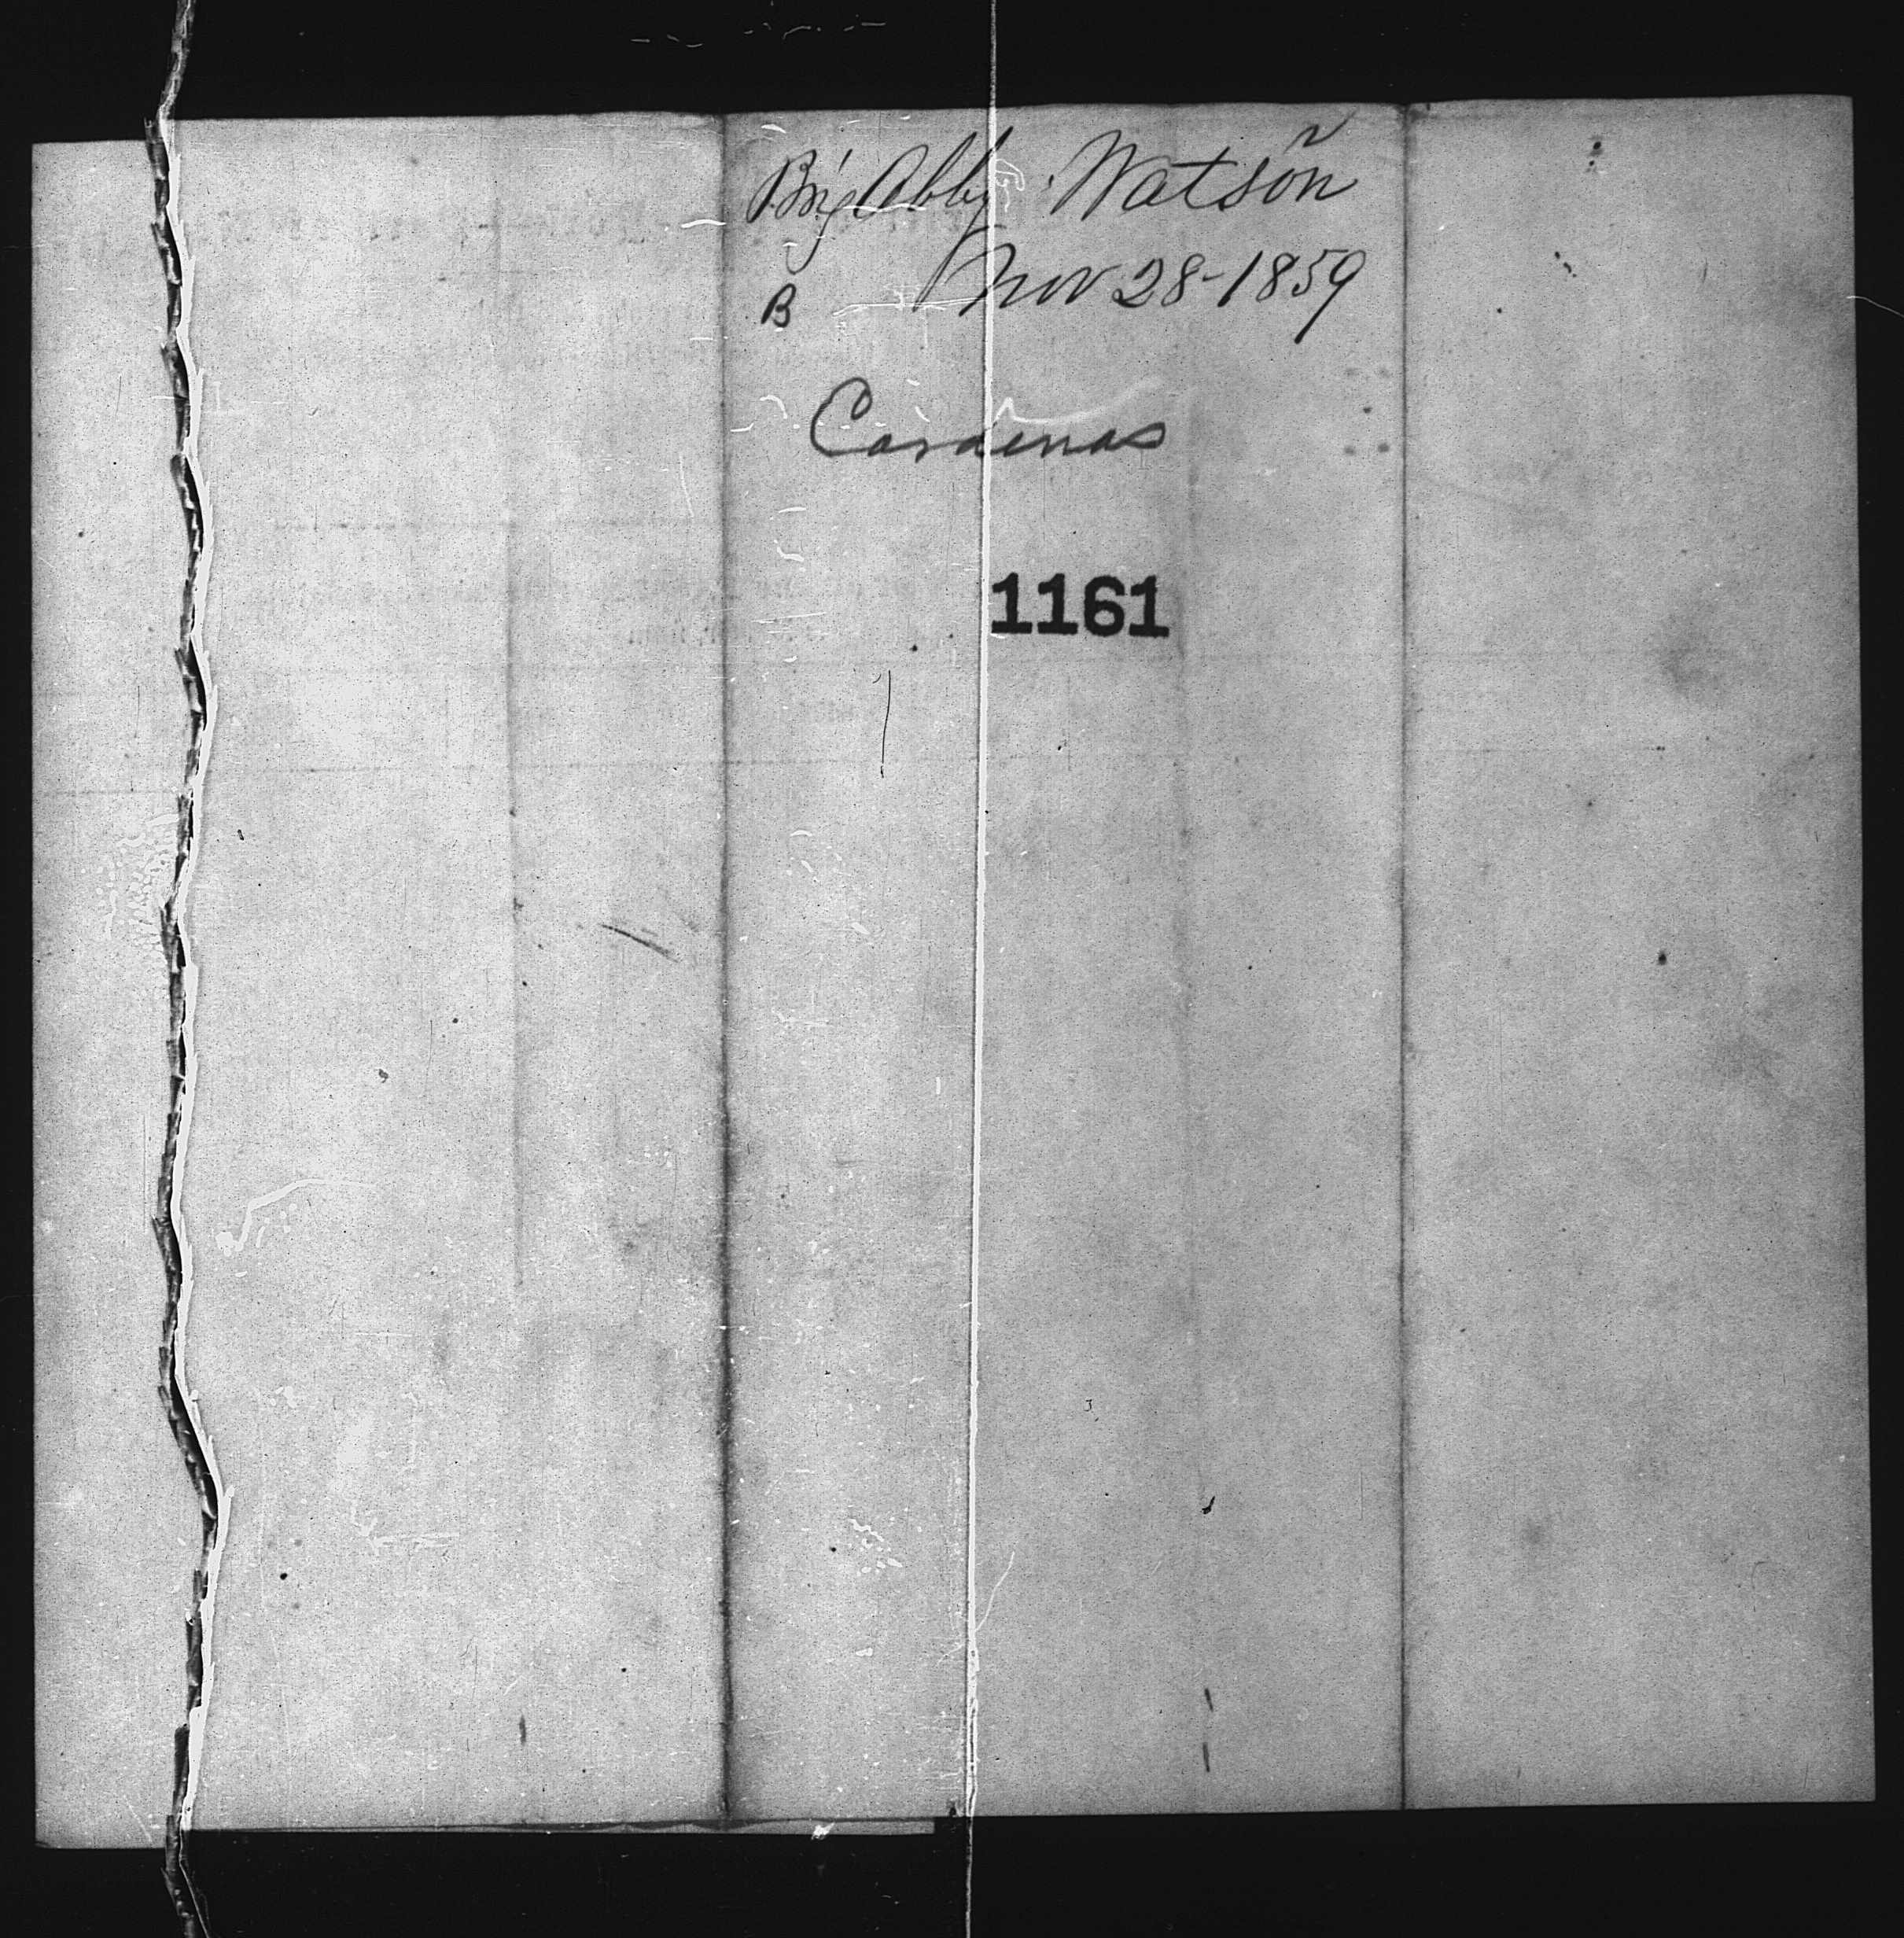 Brig Abby Watson
Nov 28-1859
B
Cardenas
1161